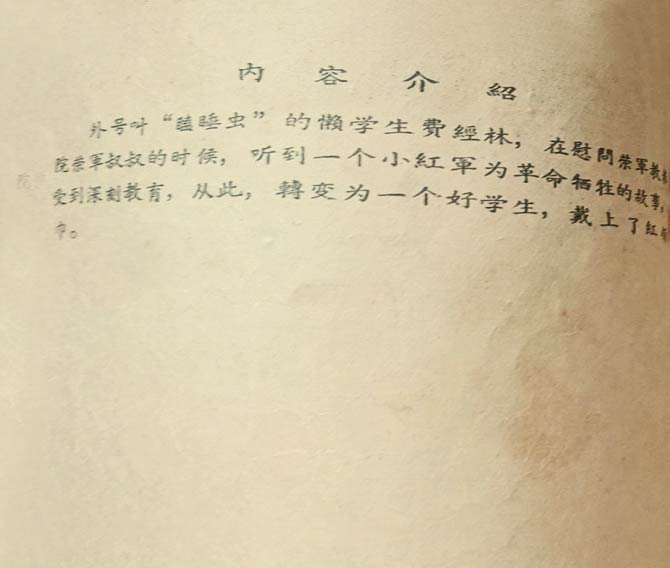 内容介紹
外号叫“瞌睡虫”的懒学生費經林，在慰問荣軍教养
院荣軍叔叔的时候，听到一个小紅軍为革命牺牲的故事，
受到深刻教育，从此，轉变为一个好学生，戴上了紅領
巾。